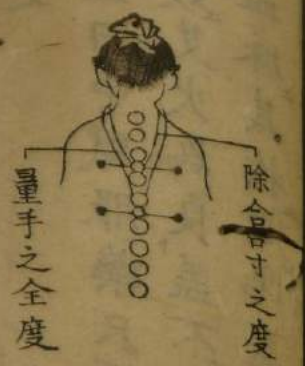 除合口寸之度
量手之全度